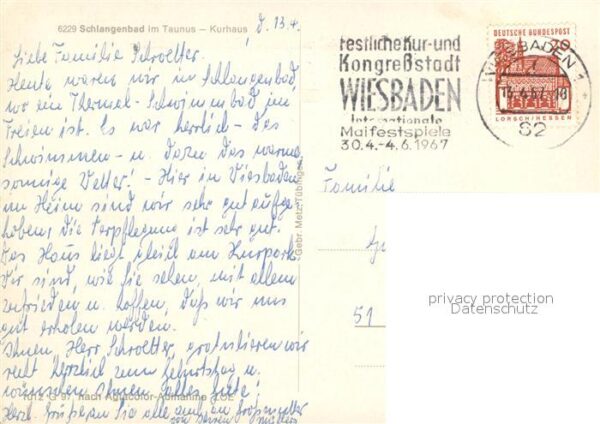 6229 Schlangenbad im Taunus – Kurhaus
d. 13.4.
Liebe Familie Schroetter.
Heute waren wir im Schlangenbad
wo ein Thermal-Schwimmbad im
Freien ist. Es war herrlich - das
Schwimmen - u. dazu das warme
sonnige Wetter! - Hier in Wiesbaden
im Heim sind wir sehr gut aufge-
hoben, die Verpflegung ist sehr gut.
Das Haus liegt gleich am Kurpark.
Wir sind, wie Sie sehen, mit allem
zufrieden u. hoffen, daß wir uns
gut erholen werden.
Ihnen, Herr Schroetter, gratulieren wir
recht herzlich zum Geburtstag u.
wünschen Ihnen alles Gute!
1012 G 97 nach Agfacolor-Aufnahme
Herzl. Grüße an Sie alle auch an Großmutter
von
Gebr. Metz, Tübingen
festliche Kur- und
Kongreßstadt
WIESBADEN
Internationale
Maifestspiele
30.4.-4.6.1967
DEUTSCHE BUNDESPOST
LORSCH/HESSEN
WIESBADEN 1
62
Familie
51
privacy protection
Datenschutz